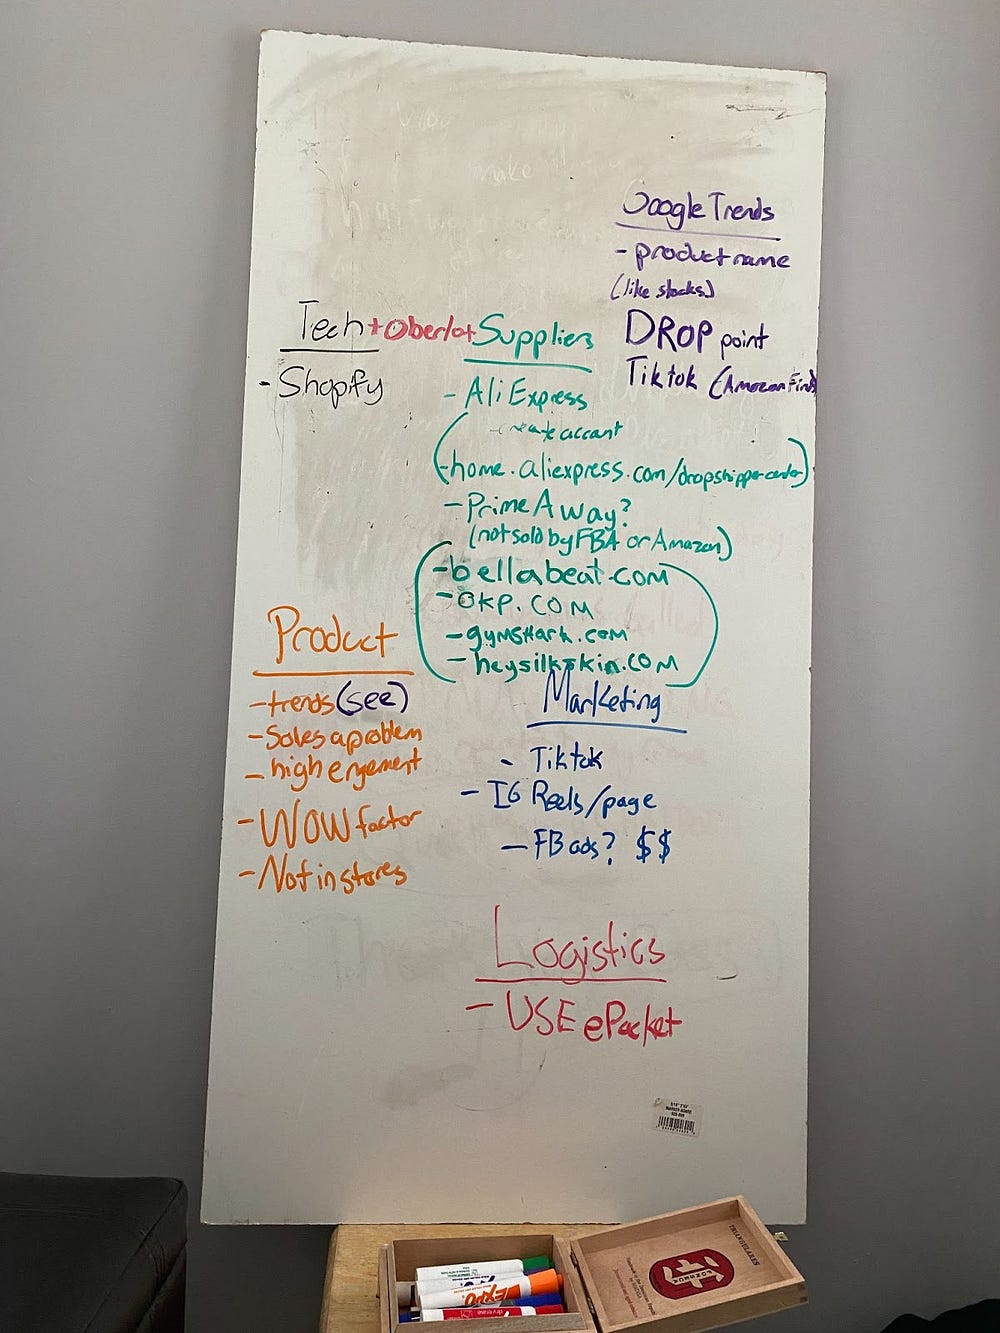 Google Trends
- product name
(like stocks)
DROP point
Tiktok (Amazon Finds)
Tech + Oberlo+
- Shopify
Suppliers
- AliExpress
- create account
(-home.aliexpress.com/dropshippercenter)
- PrimeAway?
(not sold by FBA or Amazon)
- bellabeat.com
- OKP.COM
- gymshark.com
- heysilkskin.com
Product
- trends (see)
- Solves a problem
- high engement
- WOW factor
- Not in stores
Marketing
- Tiktok
- IG Reels/page
- FB ads? $$
Logistics
- USE ePacket
EXPO
dry erase
FONSECA